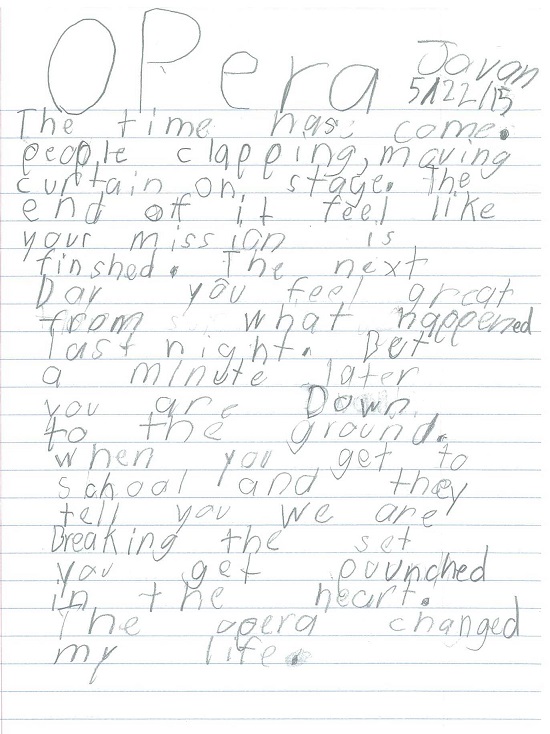 OPera
Javan
5/22/15
The time has come.
people clapping, moving
curtain on stage. The
end of it feel like
your mission is
finshed. The next
Day you feel great
from what happened
last night. But
a minute later
you are Down
to the ground.
when you get to
school and they
tell you we are
Breaking the set
you get pounched
in the heart.
The opera changed
my life.